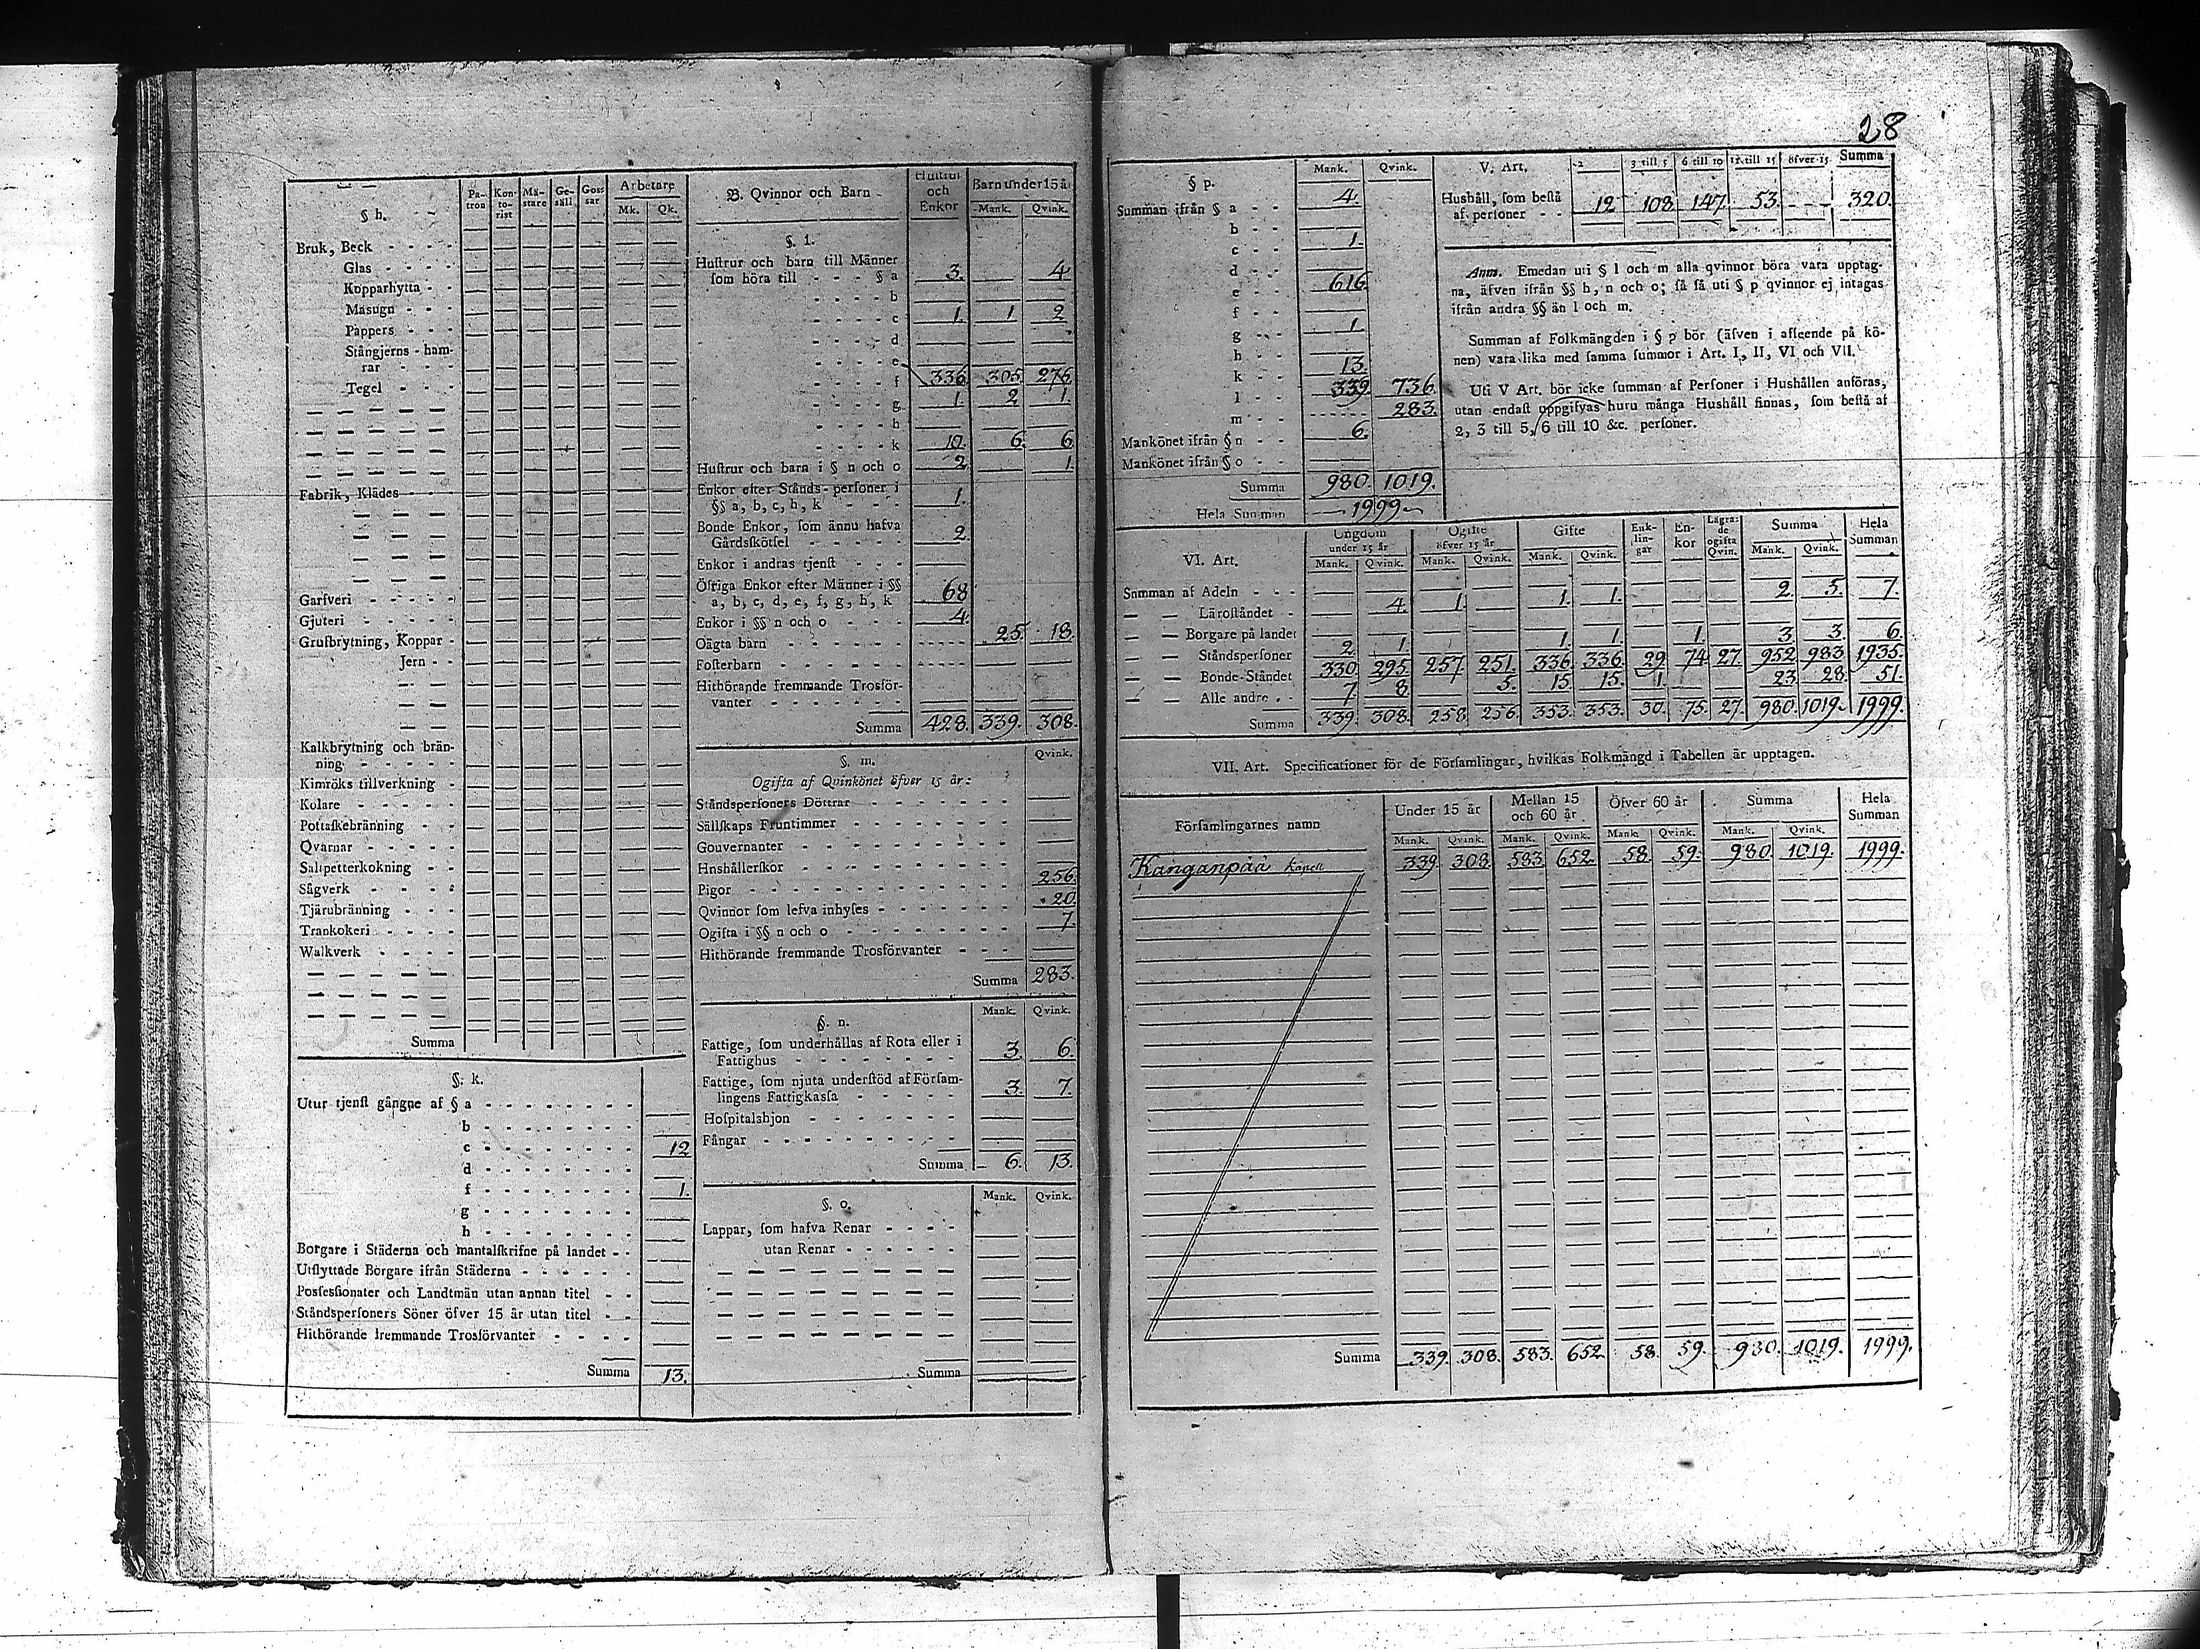 28
§ h.
Pa-
tron
Kon-
to-
rist
Mä-
stare
Ge-
säll
Gos-
sar
Arbetare
Mk. Qk.
Bruk, Beck - - - -
Glas - - - -
Kopparhytta - -
Masugn - - -
Pappers - - -
Stångjerns-ham-
rar - - - -
Tegel - - - -
Fabrik, Klädes - - -
Garfveri - - - - -
Gjuteri - - - - -
Grufbrytning, Koppar -
Jern - -
Kalkbrytning och brän-
ning - - - - -
Kimröks tillverkning -
Kolare - - - - -
Pottaskebränning - -
Qvarnar - - - - -
Salspetterkokning - -
Sågverk - - - -
Tjärubränning - - -
Trankokeri - - - -
Walkverk - - - -
Summa
§. k.
Utur tjenst gångne af § a - - - - - - - -
b - - - - - - - -
c - - - - - - - - 12
d - - - - - - - -
f - - - - - - - - 1.
g - - - - - - - -
h - - - - - - - -
Borgare i Städerna och mantalskrifne på landet - -
Utflyttade Borgare ifrån Städerna - - - - - -
Possessionater och Landtmän utan annan titel - -
Ståndspersoners Söner öfver 15 år utan titel - -
Hithörande fremmande Trosförvanter - - - -
Summa 13.
B. Qvinnor och Barn
Hustrur
och
Enkor
Barn under 15 å
Mank. Qvink.
§. l.
Hustrur och barn till Männer
som höra till - - - § a 3. 4
- - - - b
- - - - c 1. 1 2
- - - - d
- - - - e
- - - - f 336 305 276
- - - - g 1. 2 1.
- - - - h
- - - - k 10. 6. 6
Hustrur och barn i § n och o 2 1.
Enkor efter Stånds-personer i
§§ a, b, c, h, k - - - 1.
Bonde Enkor, som ännu hafva
Gårdsskötsel - - - - - 2.
Enkor i andras tjenst - - -
Öfriga Enkor efter Männer i §§
a, b, c, d, e, f, g, h, k 68
Enkor i §§ n och o - - - 4.
Oägta barn - - - - - 25. 18.
Fosterbarn - - - - - -
Hithörande fremmande Trosför-
vanter - - - - - - -
Summa 428. 339. 308.
§. m. Qvink.
Ogifta af Qvinkönet öfver 15 år:
Ståndspersoners Döttrar - - - - - - -
Sällskaps Fruntimmer - - - - - - -
Gouvernanter - - - - - - - - -
Hushållerskor - - - - - - - - -
Pigor - - - - - - - - - - - 256
Qvinnor som lefva inhyses - - - - - - - 20
Ogifta i §§ n och o - - - - - - - - 7.
Hithörande fremmande Trosförvanter - - -
Summa 283.
§. n. Mank. Qvink.
Fattige, som underhållas af Rota eller i
Fattighus - - - - - - - 3. 6.
Fattige, som njuta understöd af Försam-
lingens Fattigkassa - - - - - 3. 7.
Hospitalshjon - - - - - -
Fångar - - - - - - - - -
Summa 6. 13.
§. o. Mank. Qvink.
Lappar, som hafva Renar - - - -
utan Renar - - - - - -
Summa
§ p. Mank. Qvink.
Summan ifrån § a - - 4.
b - -
c - - 1.
d - -
e - - 616
f - -
g - - 1
h - -
k - - 13.
l - - 339. 736.
m - - 283.
Mankönet ifrån § n - - 6.
Mankönet ifrån § o - -
Summa 980. 1019.
Hela Summan 1999
V. Art. 2 3 till 5 6 till 10 11 till 15 öfver 15 Summa
Hushåll, som bestå
af personer - - 12 108 147. 53. 320.
Anm. Emedan uti § l och m alla qvinnor böra vara upptag-
na, äfven ifrån §§ h, n och o; så få uti § p qvinnor ej intagas
ifrån andra §§ än l och m.
Summan af Folkmängden i § p bör (äfven i afseende på kö-
nen) vara lika med samma summor i Art. I, II, VI och VII.
Uti V Art. bör icke summan af Personer i Hushållen anföras,
utan endast uppgifvas huru många Hushåll finnas, som bestå af
2, 3 till 5, 6 till 10 &c. personer.
VI. Art.
Ungdom
under 15 år
Mank. Qvink.
Ogifte
öfver 15 år
Mank. Qvink.
Gifte
Mank. Qvink.
Enk-
lin-
gar
En-
kor
Lägra-
de
ogifta
Qvin.
Summa
Mank. Qvink.
Hela
Summan
Summan af Adeln - - -
— — Läroståndet - 4. 1. 1. 1. 2. 5. 7.
— — Borgare på landet
— — Ståndspersoner 2. 1. 1. 1. 1. 3. 3. 6.
— — Bonde-Ståndet 330. 295. 257. 251. 336. 336. 29. 74. 27. 952. 983. 1935.
— — Alle andre - 7 8 5. 15. 15. 1. 23. 28. 51.
Summa 339. 308. 258. 256. 353. 353. 30. 75. 27. 980. 1019. 1999.
VII. Art. Specificationer för de Församlingar, hvilkas Folkmängd i Tabellen är upptagen.
Församlingarnes namn
Under 15 år
Mank. Qvink.
Mellan 15
och 60 år
Mank. Qvink.
Öfver 60 år
Mank. Qvink.
Summa
Mank. Qvink.
Hela
Summan
Kanganpää Kapell 339. 308. 583. 652. 58. 59. 980. 1019. 1999.
Summa 339. 308. 583. 652. 58. 59. 980. 1019. 1999.